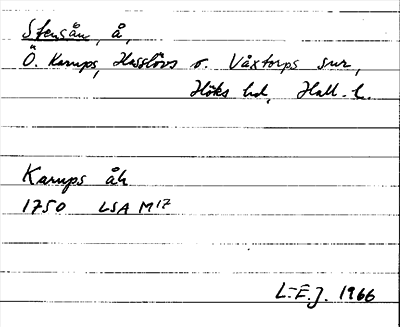 Stensån, å,
Ö. Karups, Hasslövs o. Våxtorps snr,
Höks hd, Hall. l.
Karups åk
1750 LSA M17
L.-E.J. 1966